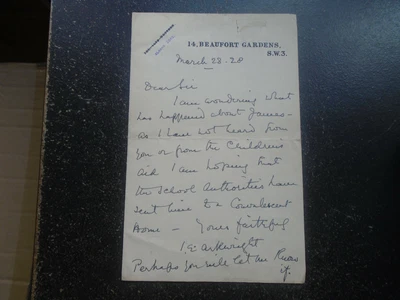 14, BEAUFORT GARDENS,
S.W.3.
March 28. 28
Dear Sir
I am wondering what
has happened about James -
as I have not heard from
you or from the Children's
Aid I am hoping that
the School Authorities have
sent him to a Convalescent
Home - Yours faithfully
I. E. Arkwright
Perhaps you will let me know
if.